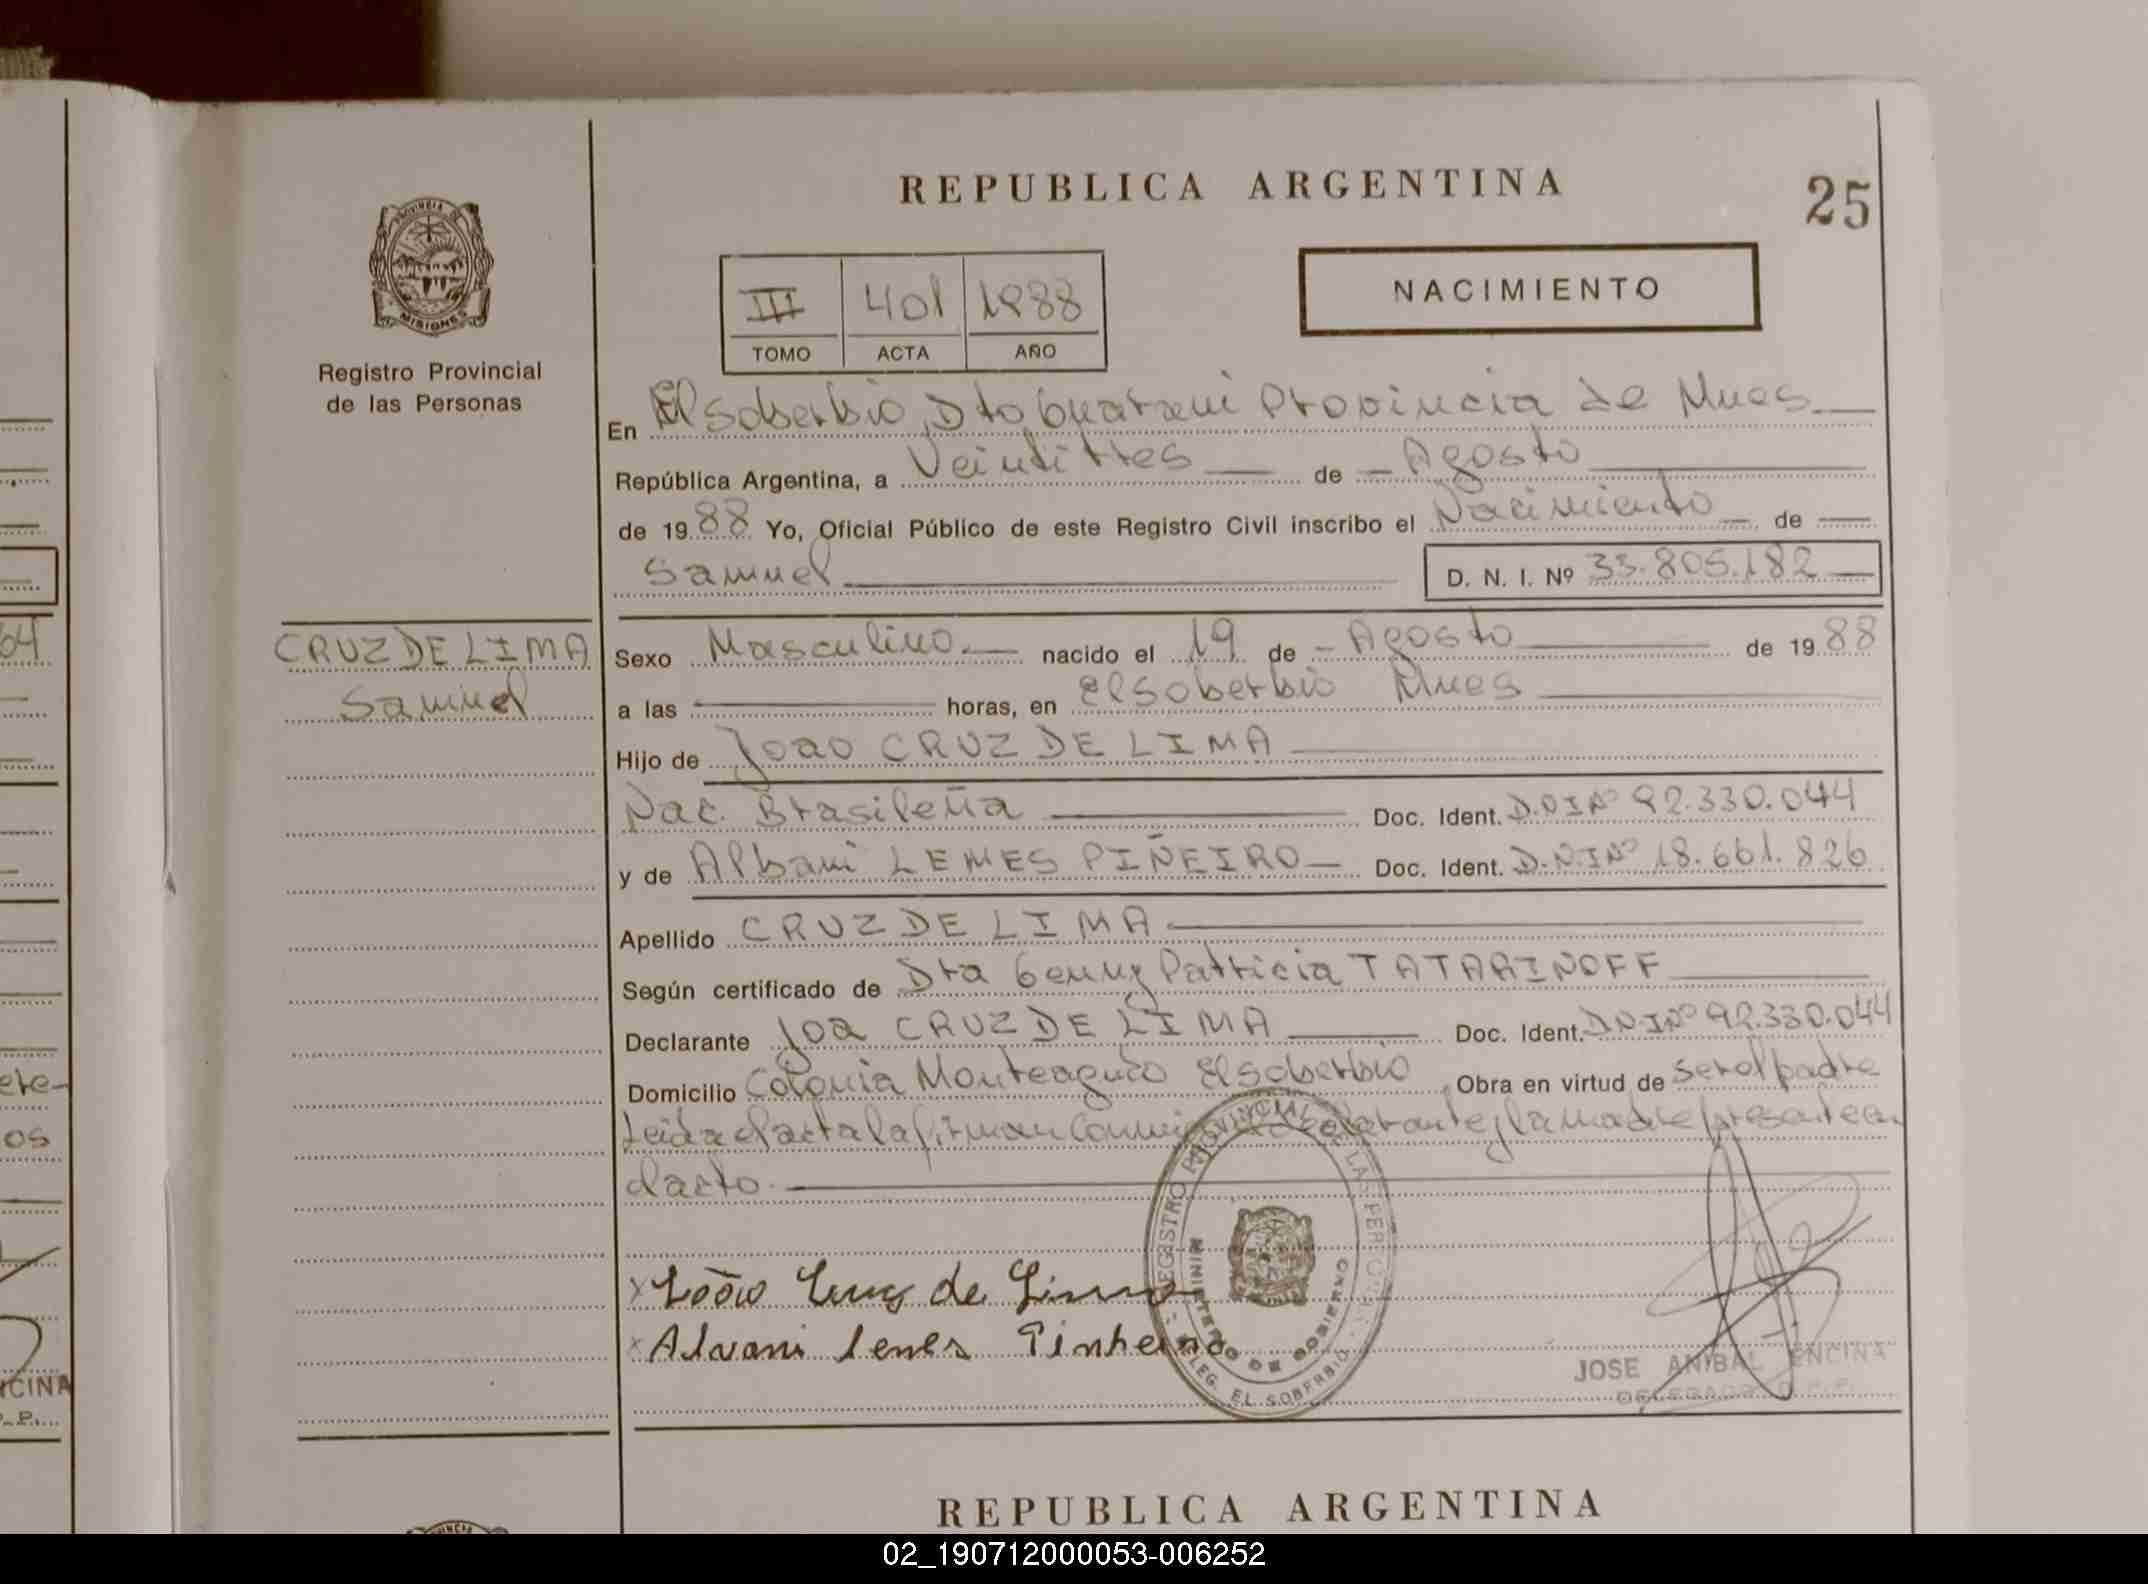 REPUBLICA ARGENTINA
25
PROVINCIA DE
MISIONES
Registro Provincial
de las Personas
III 401 1988
TOMO ACTA AÑO
NACIMIENTO
En El soberbio, Dto Guarani Provincia de Mnes
República Argentina, a Veintitres de Agosto
de 1988 Yo, Oficial Público de este Registro Civil inscribo el Nacimiento de
Samuel D. N. I. Nº 33.805.182
CRUZ DE LIMA
Samuel
Sexo Masculino nacido el 19 de Agosto de 1988
a las horas, en El soberbio Mnes
Hijo de Joao CRUZ DE LIMA
Nac. Brasileña Doc. Ident. D.N.I Nº 92.330.044
y de Albani LEMES PIÑEIRO Doc. Ident. D.N.I Nº 18.661.826
Apellido CRUZ DE LIMA
Según certificado de Dra Genny Patricia TATARINOFF
Declarante Joa CRUZ DE LIMA Doc. Ident. D.N.I Nº 92.330.044
Domicilio Colonia Monteagudo El soberbio Obra en virtud de ser el padre
Leida el acta la firman Conmigo declarante y la madre presente en
el acto.
x João Cruz de Lima
x Alvani Lemes Pinheiro
REGISTRO PROVINCIAL DE LAS PERSONAS
MINISTERIO DE GOBIERNO
DELEG. EL SOBERBIO
JOSE ANIBAL ENCINA
DELEGADO R.P.P.
REPUBLICA ARGENTINA
64
ere-
os
NCINA
02_190712000053-006252